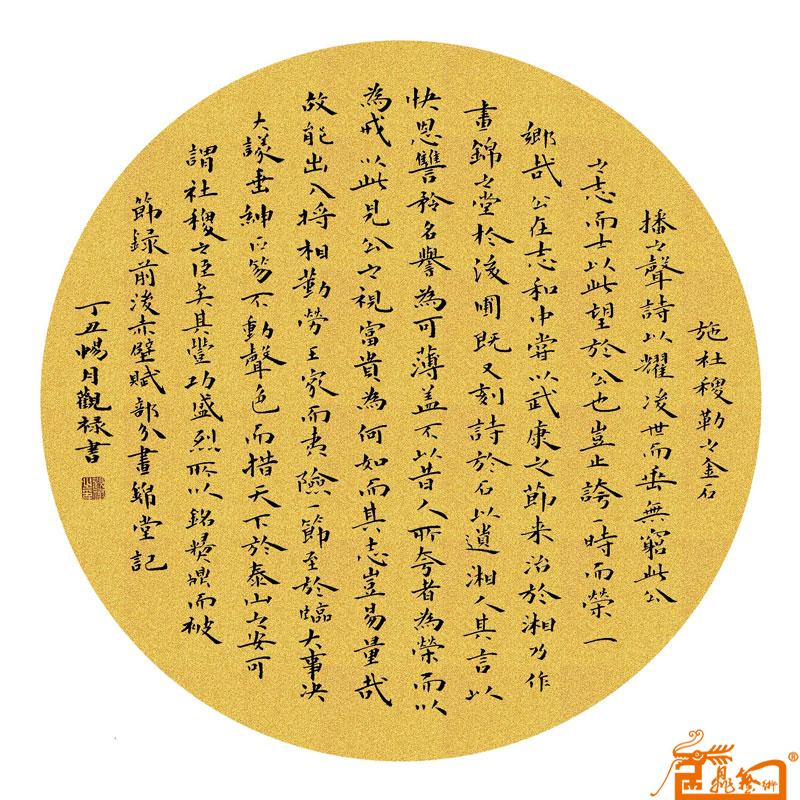 施社稷勒之金石
播之聲詩以耀後世而垂無窮此公
之志而士以此望於公也豈止誇一時而榮一
鄉哉公在志和中嘗以武康之節来治於湘乃作
畫錦之堂於後圃既又刻詩於石以遺湘人其言以
快恩讐矜名譽為可薄盖不以昔人所夸者為榮而以
為戒以此見公之視富貴為何如而其志豈易量哉
故能出入将相勤勞王家而夷險一節至於臨大事决
大議垂紳正笏不動聲色而措天下於泰山之安可
謂社稷之臣矣其豐功盛烈所以銘彜鼎而被
節録前後赤壁賦部分畫錦堂記
丁丑暢月觀祿書